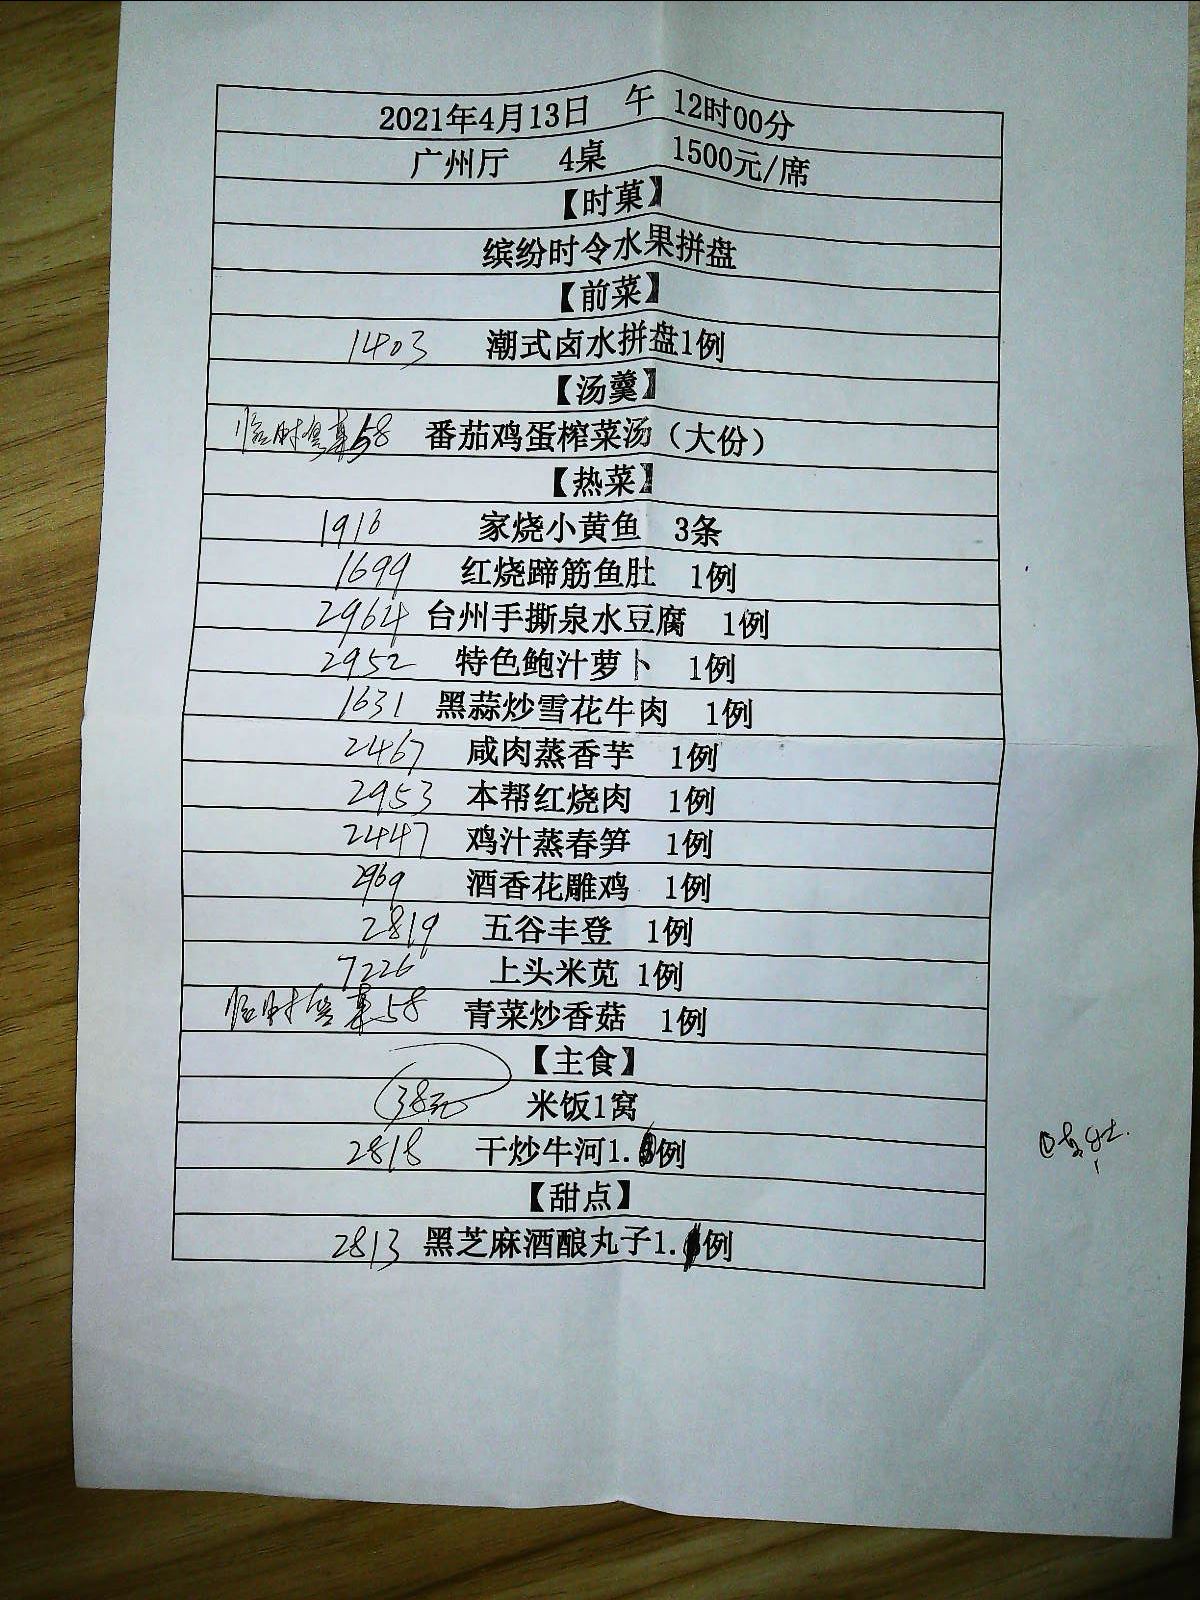 2021年4月13日 午 12时00分
广州厅 4桌 1500元/席
【时菓】
缤纷时令水果拼盘
【前菜】
1403 潮式卤水拼盘1例
【汤羹】
临时粤菜58 番茄鸡蛋榨菜汤（大份）
【热菜】
1916 家烧小黄鱼 3条
1699 红烧蹄筋鱼肚 1例
2964 台州手撕泉水豆腐 1例
2952 特色鲍汁萝卜 1例
1631 黑蒜炒雪花牛肉 1例
2467 咸肉蒸香芋 1例
2953 本帮红烧肉 1例
2447 鸡汁蒸春笋 1例
2969 酒香花雕鸡 1例
2819 五谷丰登 1例
7226 上头米苋 1例
临时粤菜58 青菜炒香菇 1例
【主食】
38元 米饭1窝
2818 干炒牛河1.例
【甜点】
2813 黑芝麻酒酿丸子1.例